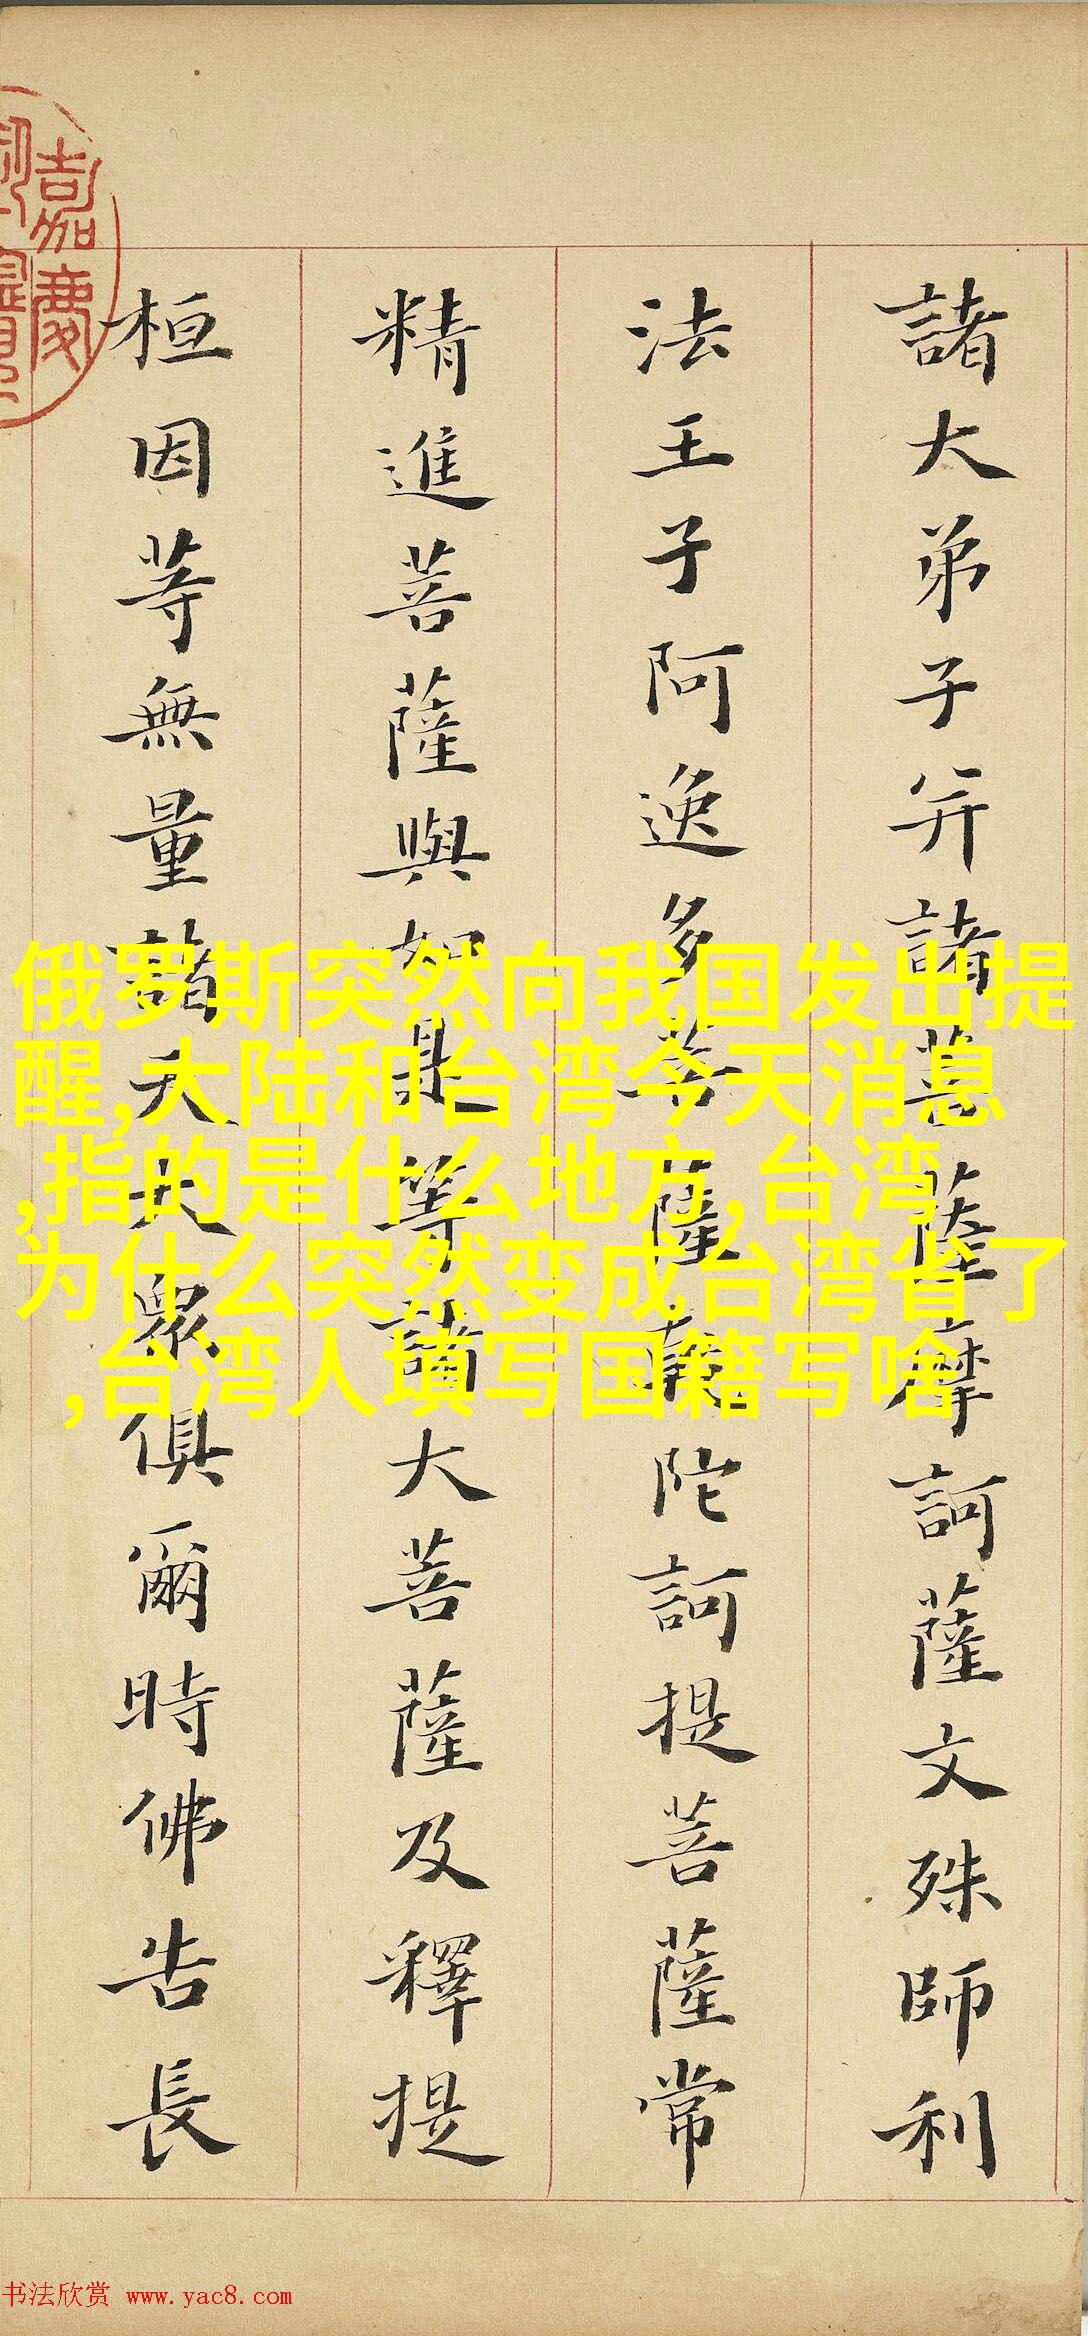 諸大弟子并諸菩薩摩訶薩文殊師利
法王子阿逸多菩薩乾陀訶提菩薩常
精進菩薩與如是等諸大菩薩及釋提
桓因等無量諸天大眾俱爾時佛告長
嘉慶
俄罗斯突然向我国发出提
醒,大陆和台湾今天消息
,指的是什么地方,台湾
为什么突然变成台湾省了
,台湾人填写国籍写啥
书法欣赏 www.yac8.com